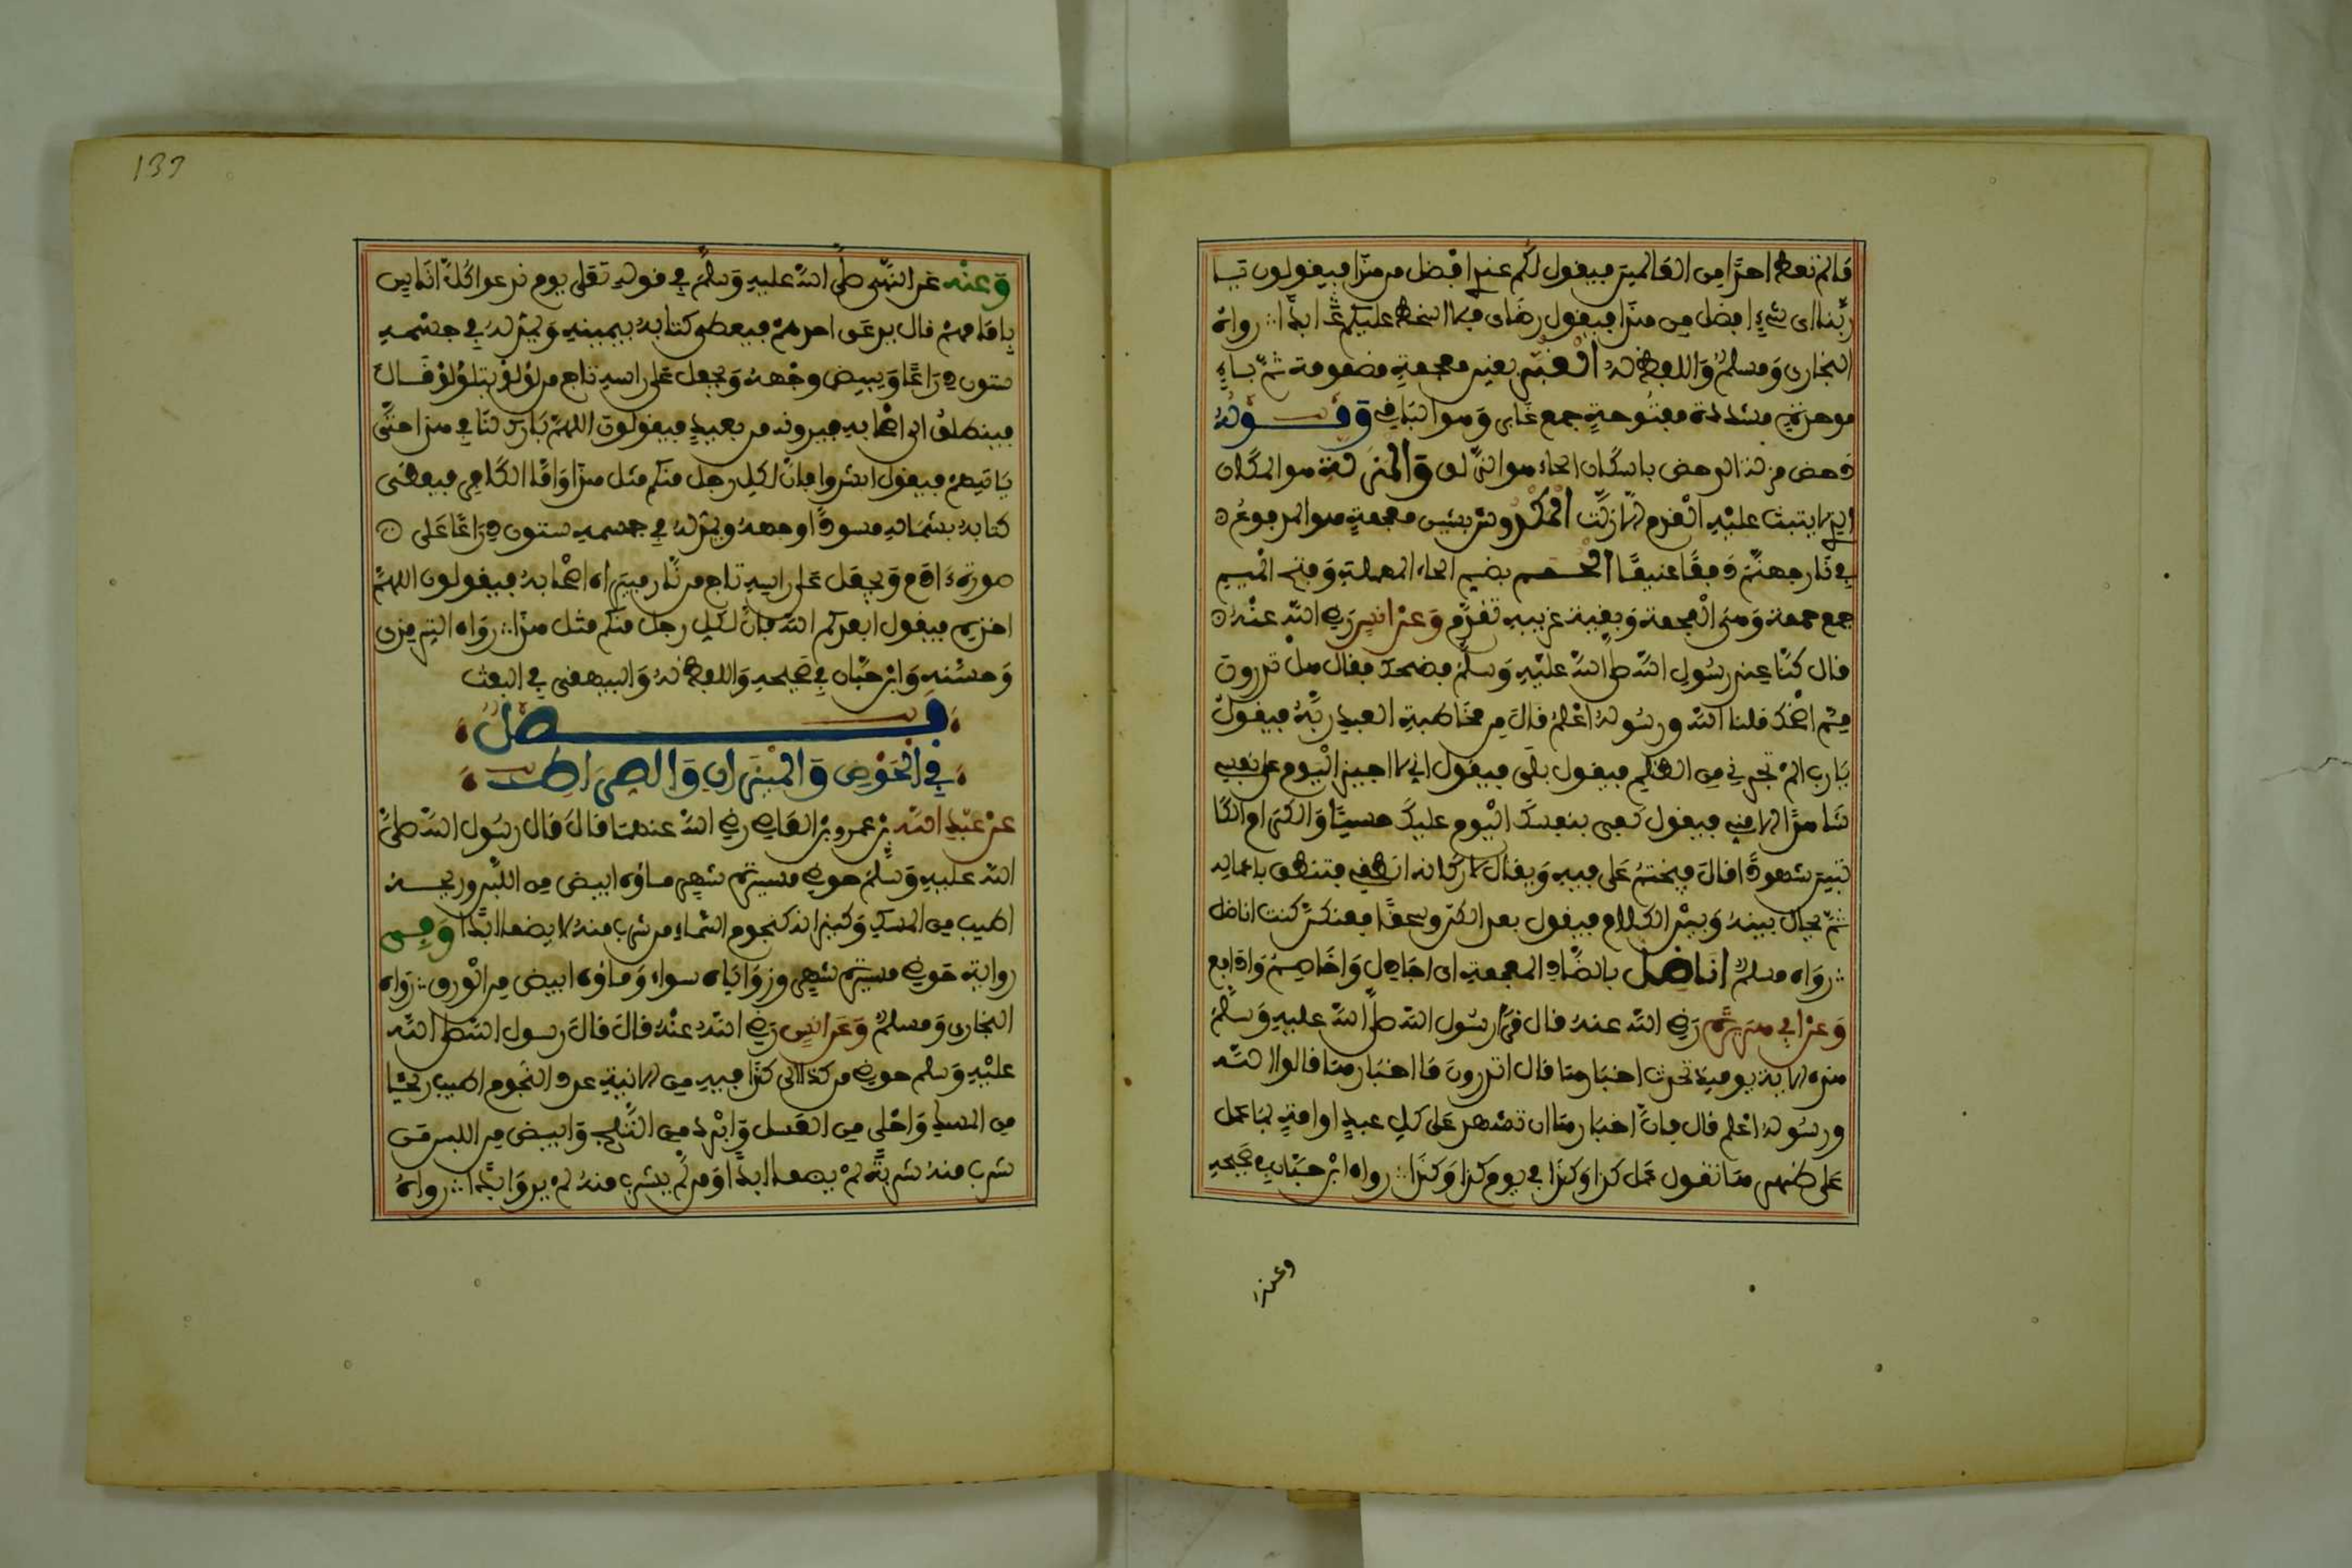 مالم تعط احدا من العالمين فيقول لكم عندي افضل من هذا فيقولون يا
ربنا اي شيء افضل من هذا فيقول رضاي فلا اسخط عليكم بعده ابدا رواه
البخاري ومسلم واللفظ له الغبر بغين معجمة مضمومة ثم باء
موحدة مشددة مفتوحة جمع غابر وهو الباقي وقوله
دحض مزلة الدحض باسكان الحاء هو الزلق والمزلة هو المكان
الذي لا يثبت عليه القدم الا زلت المكدوش بشين معجمة هو المدفوع
في نار جهنم دفعا عنيفا الحمم بضم الحاء المهملة وفتح الميم
جمع حممة وهي الفحمة وبقية غريبه تقدم وعن انس رضي الله عنه
قال كنا عند رسول الله صلى الله عليه وسلم فضحك فقال هل تدرون
مم اضحك قلنا الله ورسوله اعلم قال من مخاطبة العبد ربه فيقول
يا رب الم تجرني من الظلم فيقول بلى فيقول اني لا اجيز اليوم على نفسي
شاهدا الا مني فيقول كفى بنفسك اليوم عليك حسيبا والكرام الكا
تبين شهودا قال فيختم على فيه ويقال لاركانه انطقي فتنطق باعماله
ثم يخلى بينه وبين الكلام فيقول بعدا لكن وسحقا فعنكن كنت اناضل
رواه مسلم اناضل بالضاد المعجمة اي اجادل واخاصم وادافع
وعن ابي هريرة رضي الله عنه قال قرأ رسول الله صلى الله عليه وسلم
هذه الاية يومئذ تحدث اخبارها قال اتدرون ما اخبارها قالوا الله
ورسوله اعلم قال فان اخبارها ان تشهد على كل عبد او امة بما عمل
على ظهرها تقول عمل كذا وكذا في يوم كذا وكذا رواه ابن حبان في صحيحه
وعنه
137
وعنه عن النبي صلى الله عليه وسلم في قوله تعلى يوم ندعوا كل اناس
بامامهم قال يدعى احدهم فيعطى كتابه بيمينه ويمد له في جسمه
ستون ذراعا ويبيض وجهه ويجعل على راسه تاج من لؤلؤ يتلؤلؤ قال
فينطلق الى اصحابه فيرونه من بعيد فيقولون اللهم بارك لنا في هذا حتى
ياتيهم فيقول ابشروا فان لكل رجل منكم مثل هذا واما الكافر فيعطى
كتابه بشماله مسودا وجهه ويمد له في جسمه ستون ذراعا على
صورة ءادم ويجعل على راسه تاج من نار فيراه اصحابه فيقولون اللهم
اخزه فيقول ابعدكم الله فان لكل رجل منكم مثل هذا رواه الترمذي
وحسنه وابن حبان في صحيحه واللفظ له والبيهقي في البعث
فصل
في الحوض والميزان والصراط
عن عبد الله بن عمرو بن العاص رضي الله عنهما قال قال رسول الله صلى
الله عليه وسلم حوضي مسيرة شهر ماؤه ابيض من اللبن وريحه
اطيب من المسك وكيزانه كنجوم السماء من شرب منه لا يضما ابدا وفي
رواية حوضي مسيرة شهر وزواياه سواء وماؤه ابيض من الورق رواه
البخاري ومسلم وعن انس رضي الله عنه قال قال رسول الله صلى الله
عليه وسلم حوضي من كذا الى كذا فيه من الانية عدد النجوم اطيب ريحا
من المسك واحلى من العسل وابرد من الثلج وابيض من اللبن من
شرب منه شربة لم يضما ابدا ومن لم يشرب منه لم يرو ابدا رواه